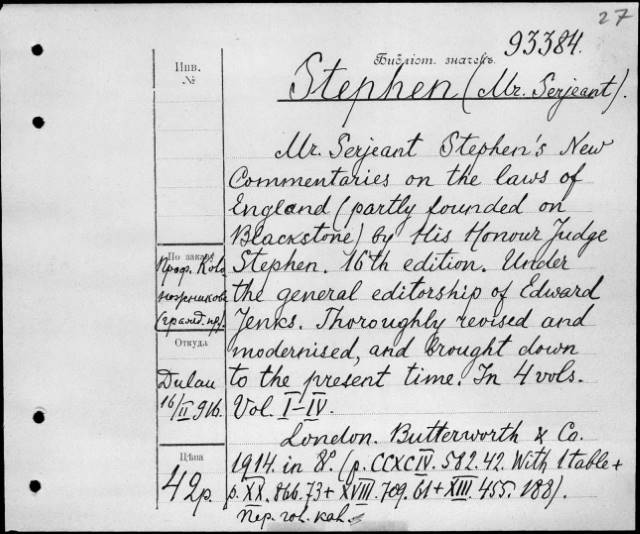 27
93384.
Библіот. значекъ.
Инв.
№
Stephen (Mr. Serjeant).
Mr. Serjeant Stephen's New
Commentaries on the laws of
England (partly founded on
Blackstone) by His Honour Judge
Stephen. 16th edition. Under
the general editorship of Edward
Jenks. Thoroughly revised and
modernised, and brought down
to the present time. In 4 vols.
Vol. I–IV.
London. Butterworth & Co.
1914. in 8°. (p. CCXCIV. 582. 42. With 1 table +
p. XX. 866. 73 + XVIII. 709. 61 + XIII. 455. 188).
По заказу
Проф.
(гражд. пр.)
Откуда
Dulau
16/II 916.
Цѣна
42 р.